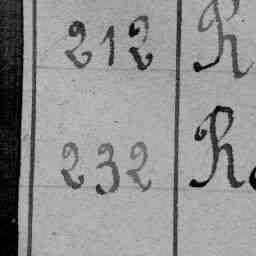 212 R
232 Ro